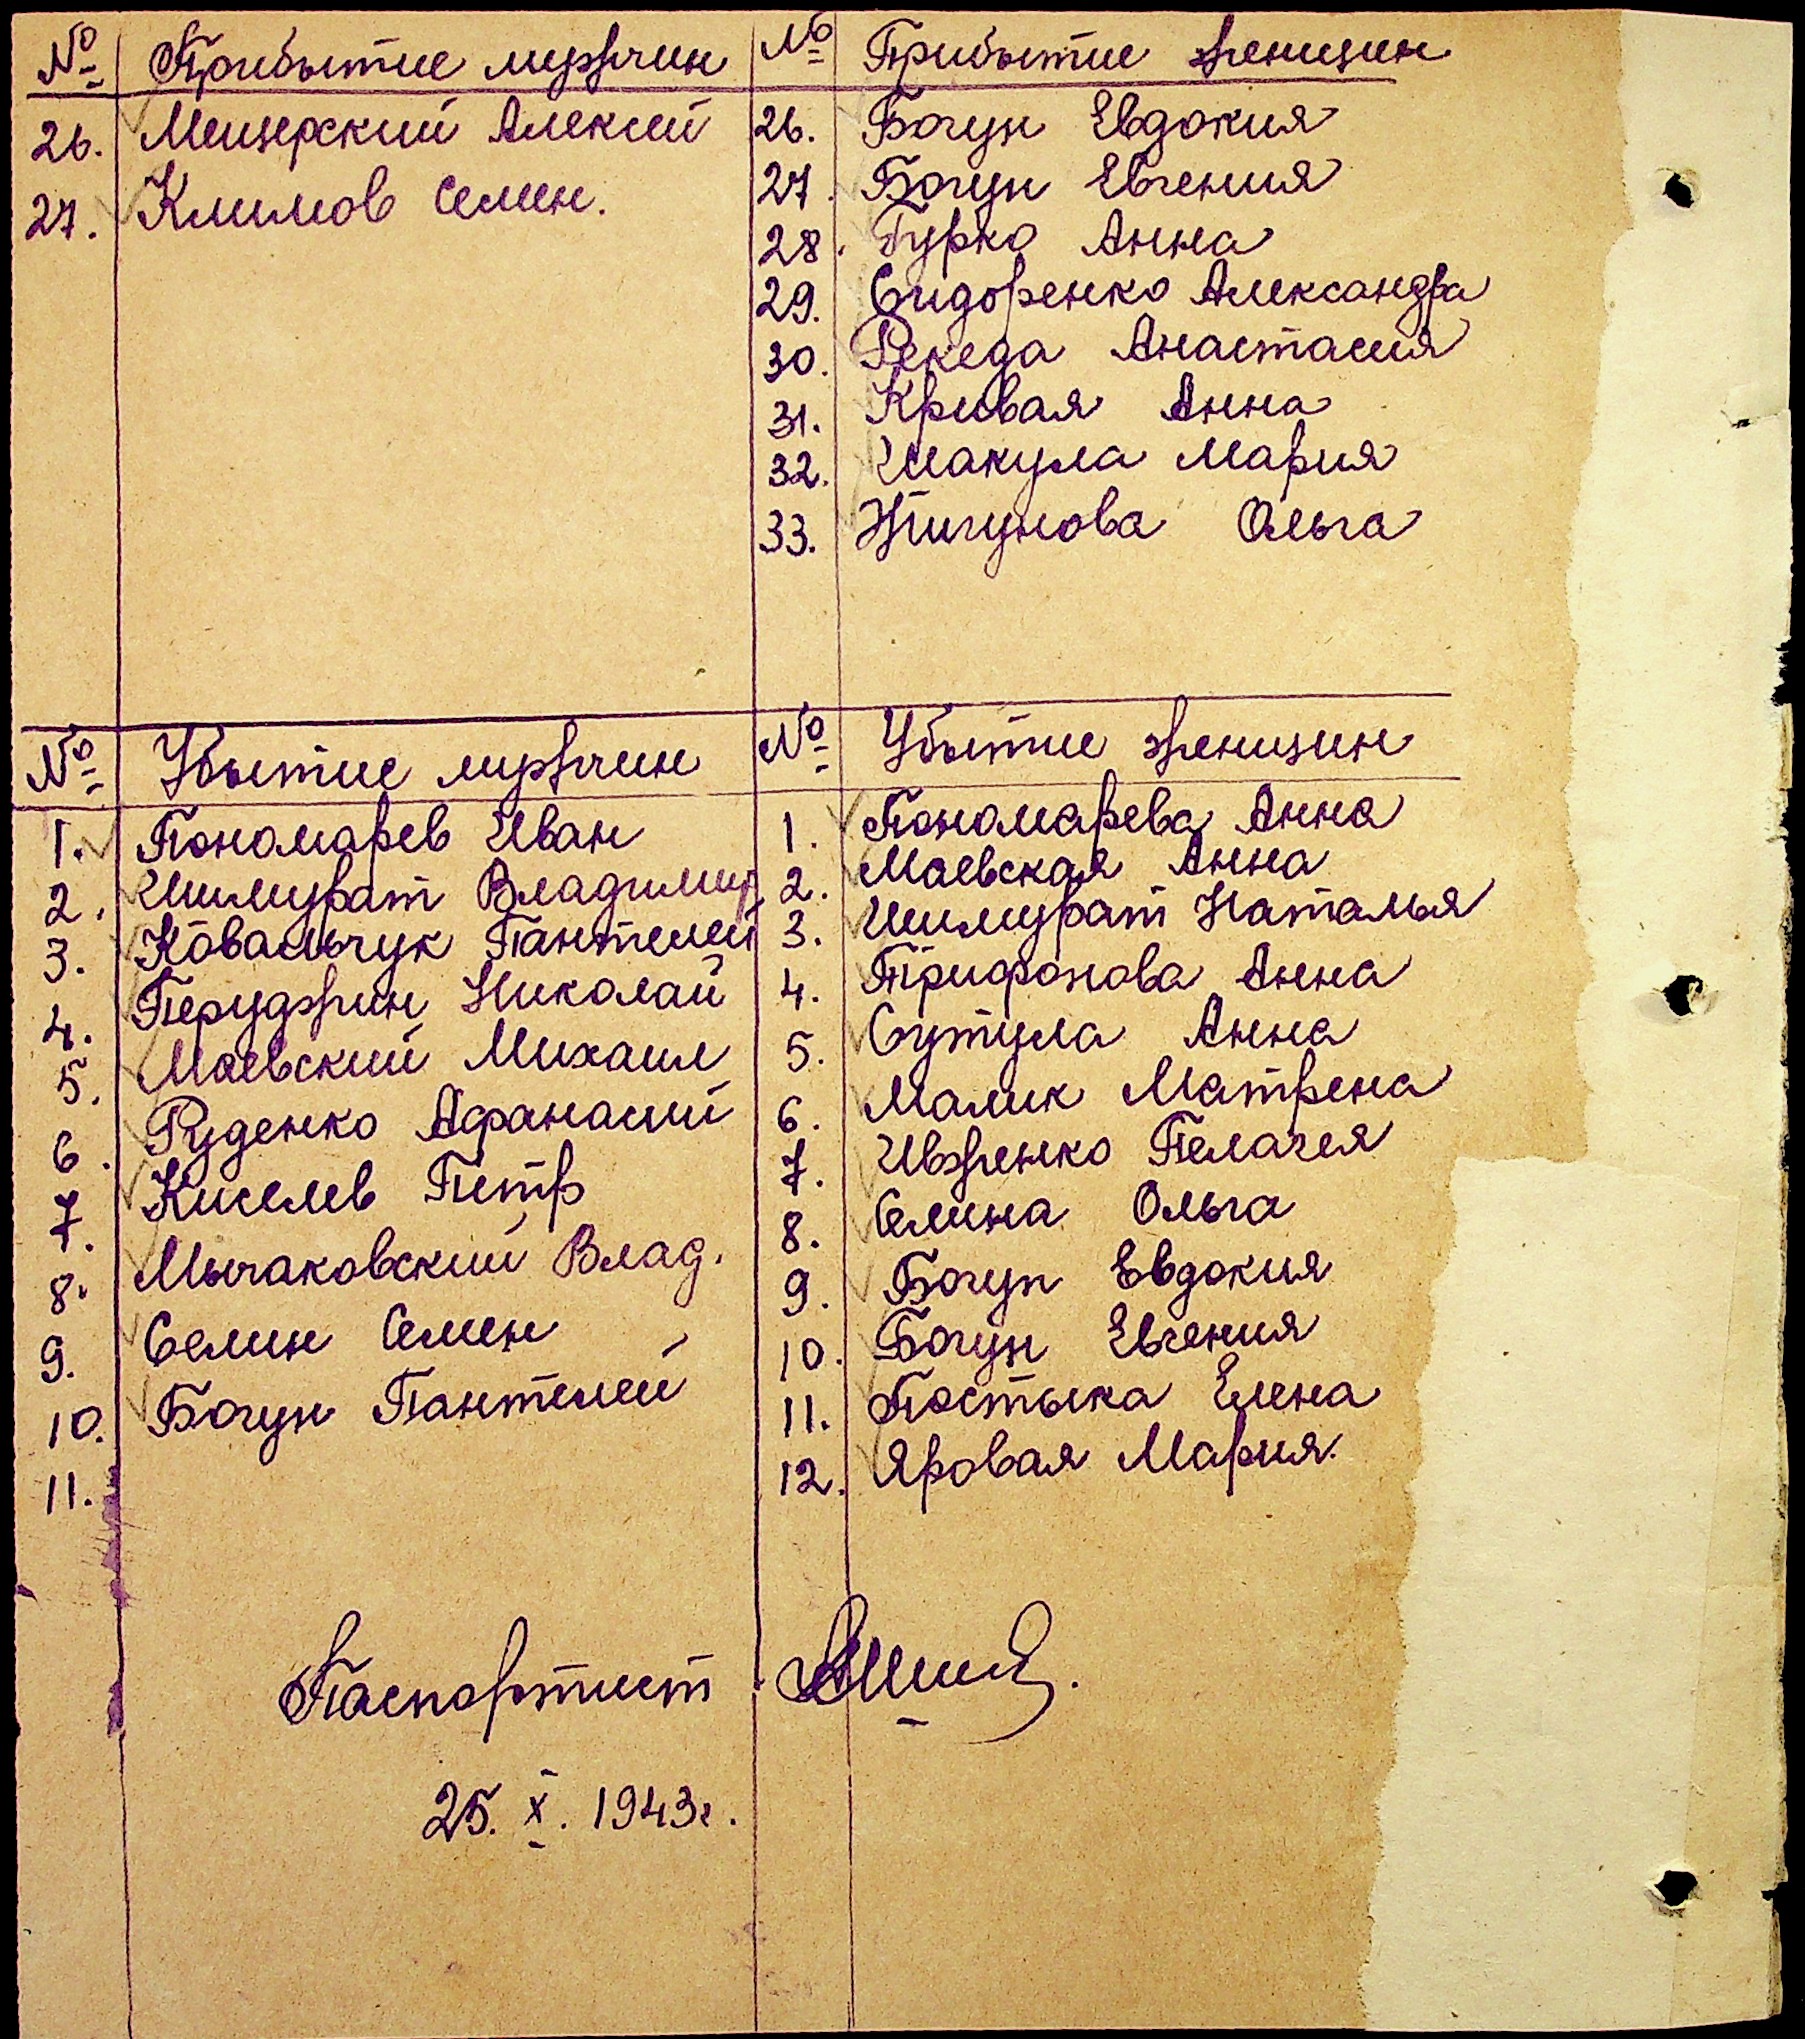 № Прибытие мужчин
26. Мещерский Алексей
27. Климов Семен.
№ Прибытие женщин
26. Богун Евдокия
27. Богун Евгения
28. Гурко Анна
29. Сидоренко Александра
30. Рекеда Анастасия
31. Кривая Анна
32. Шакула Мария
33. Жигунова Ольга
№ Убытие мужчин
1. Пономарев Иван
2. Шимурат Владимир
3. Ковальчук Пантелей
4. Перуджин Николай
5. Маевский Михаил
6. Руденко Афанасий
7. Киселев Петр
8. Мычаковский Влад.
9. Селин Семен
10. Богун Пантелей
11.
№ Убытие женщин
1. Пономарева Анна
2. Маевская Анна
3. Шимурат Наталья
4. Трифонова Анна
5. Сутула Анна
6. Малик Матрена
7. Ивженко Пелагея
8. Селина Ольга
9. Богун Евдокия
10. Богун Евгения
11. Постыка Елена
12. Яровая Мария.
Паспортист
25. X. 1943г.